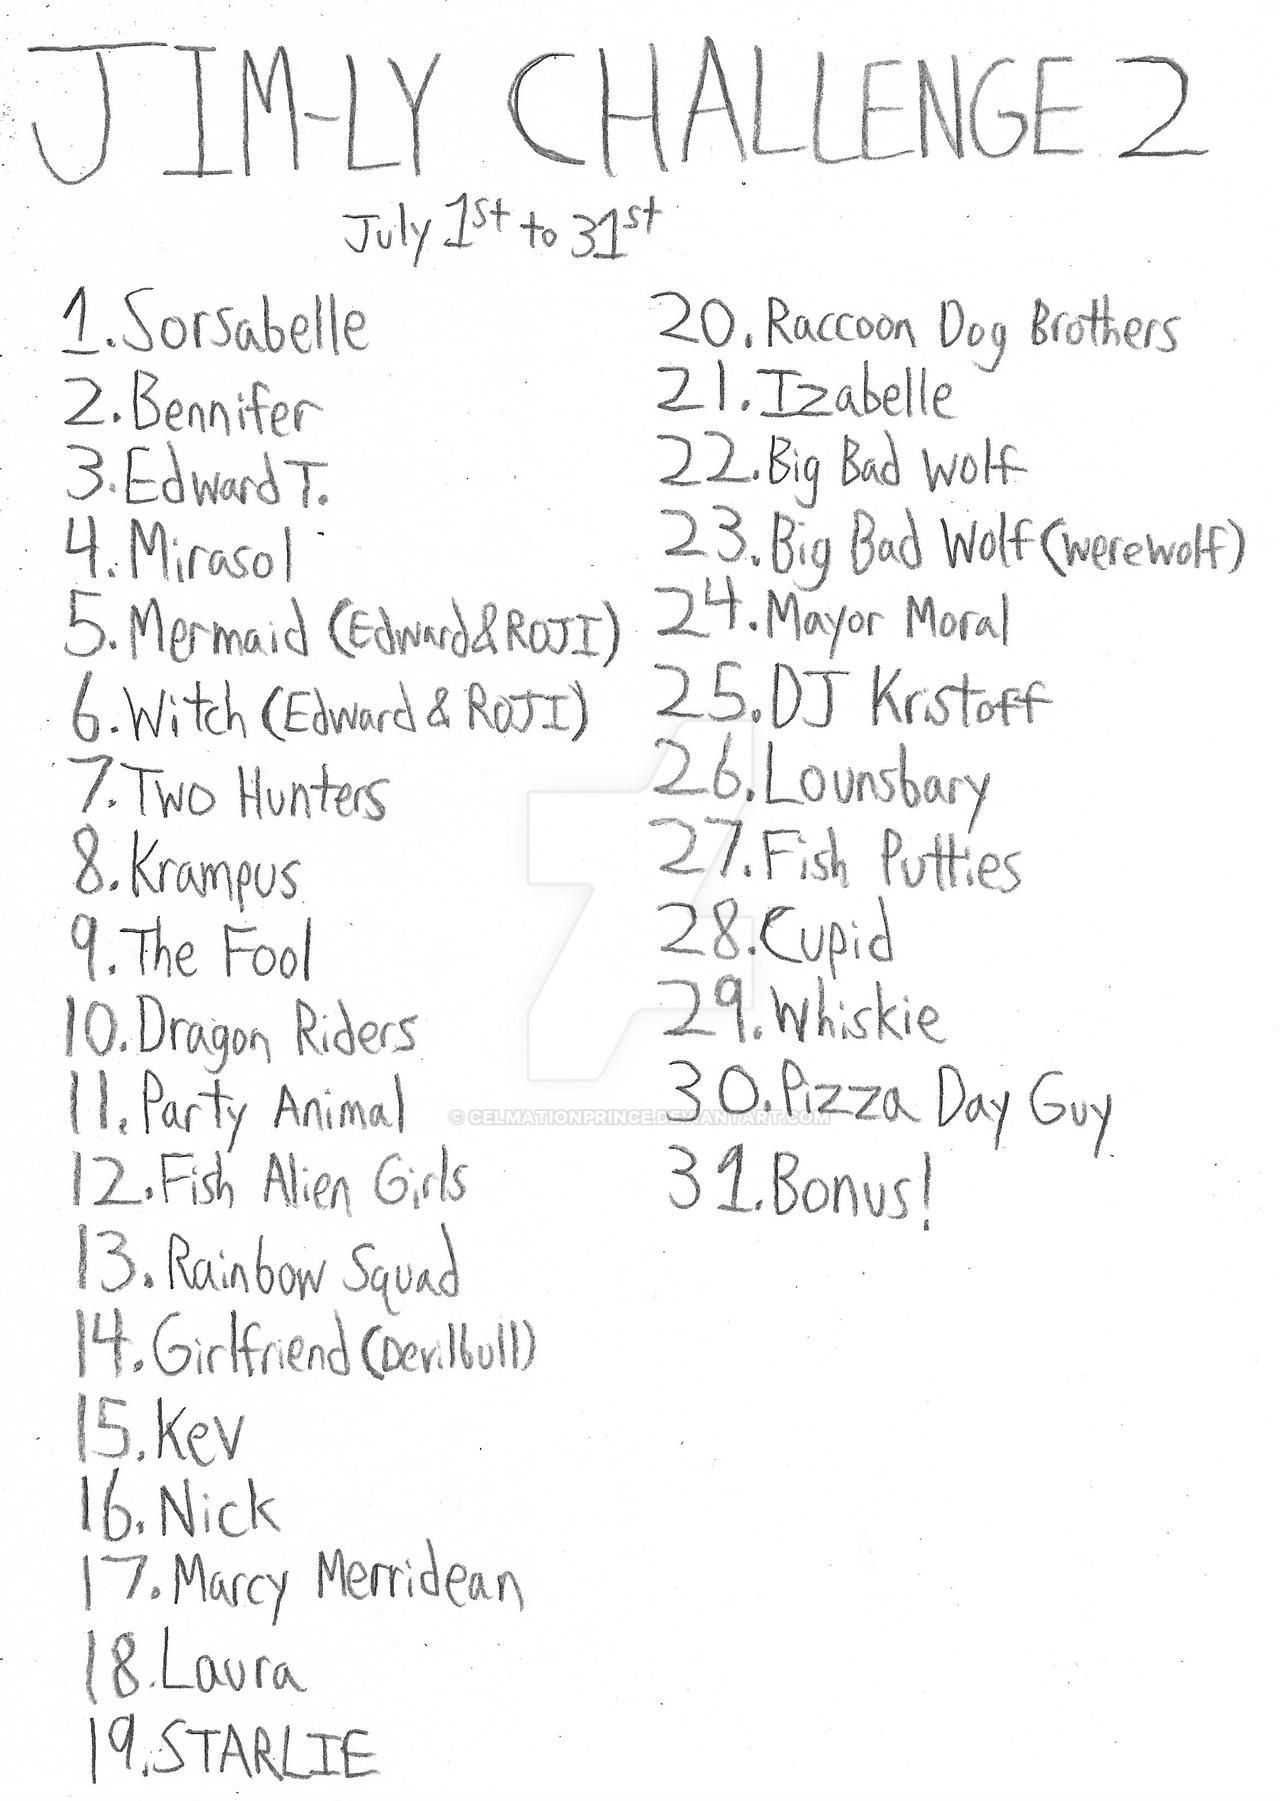 JIM-LY CHALLENGE 2
July 1st to 31st
1. Sorsabelle
2. Bennifer
3. Edward T.
4. Mirasol
5. Mermaid (Edward & ROJI)
6. Witch (Edward & ROJI)
7. Two Hunters
8. Krampus
9. The Fool
10. Dragon Riders
11. Party Animal
12. Fish Alien Girls
13. Rainbow Squad
14. Girlfriend (Devilbull)
15. Kev
16. Nick
17. Marcy Merridean
18. Laura
19. STARLIE
20. Raccoon Dog Brothers
21. Izabelle
22. Big Bad Wolf
23. Big Bad Wolf (Werewolf)
24. Mayor Moral
25. DJ Kristoff
26. Lounsbary
27. Fish Putties
28. Cupid
29. Whiskie
30. Pizza Day Guy
31. Bonus!
© CELMATIONPRINCE.DEVIANTART.COM